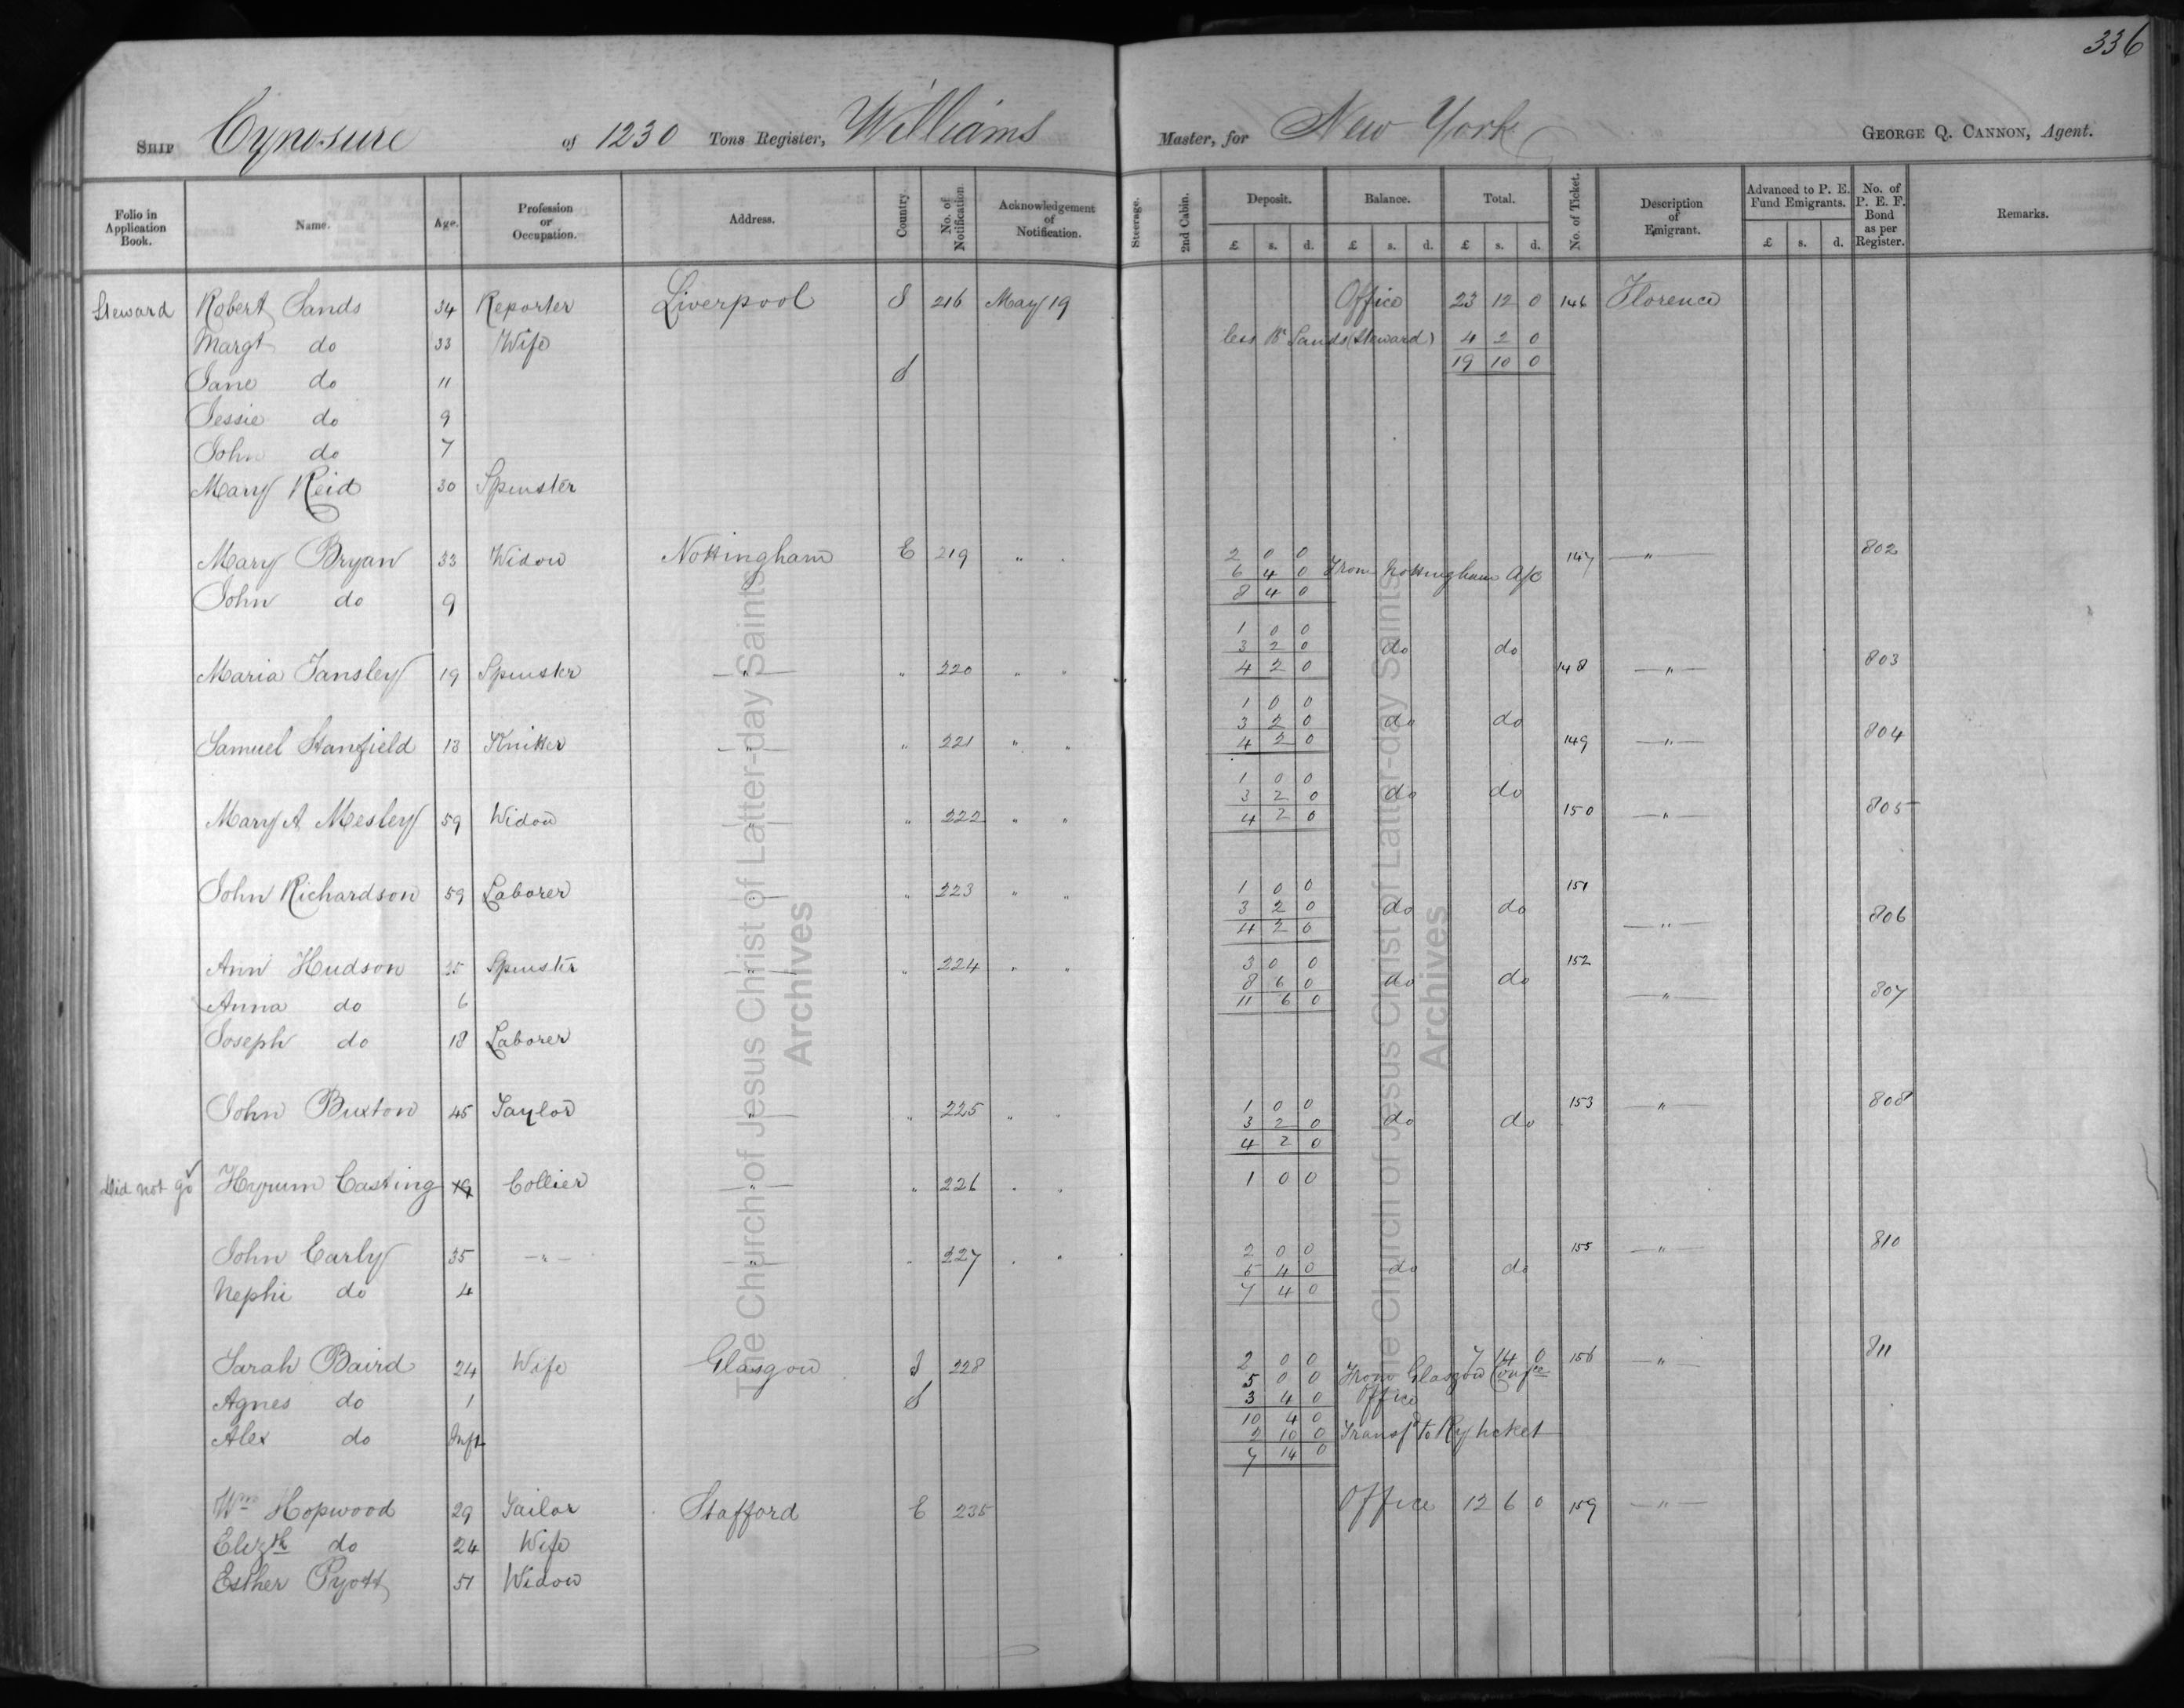 336
Ship Cynosure of 1230 Tons Register, Williams Master, for New York George Q. Cannon, Agent.
Folio in Application Book. Name. Age. Profession or Occupation. Address. Country. No. of Notification. Acknowledgement of Notification. Steerage. 2nd Cabin. Deposit. Balance. Total. No. of Ticket. Description of Emigrant. Advanced to P. E. Fund Emigrants. No. of P. E. F. Bond as per Register. Remarks.
£ s. d. £ s. d. £ s. d. £ s. d.
Steward Robert Sands 34 Reporter Liverpool S 216 May 19 Office 23 12 0 146 Florence
Margt do 33 Wife less R Sands (Steward) 4 2 0
19 10 0
Jane do 11 S
Jessie do 9
John do 7
Mary Reid 30 Spinster
Mary Bryan 33 Widow Nottingham E 219 " 2 0 0 147 " 802
6 4 0 From Nottingham A/c
John do 9 8 4 0
1 0 0
3 2 0 do do
Maria Tansley 19 Spinster " " 220 " " 4 2 0 148 " 803
1 0 0
3 2 0 do do
Samuel Stanfield 13 Knitter " " 221 " " 4 2 0 149 " 804
1 0 0
3 2 0 do do
Mary A. Mesley 59 Widow " " 222 " " 4 2 0 150 " 805
John Richardson 59 Laborer " " 223 " " 1 0 0 151
3 2 0 do do " 806
4 2 0
Ann Hudson 35 Spinster " " 224 " " 3 0 0 152
8 6 0 do do
Anna do 6 11 6 0 " 807
Joseph do 18 Laborer
John Buxton 45 Taylor " " 225 " " 1 0 0 153 " 808
3 2 0 do do
4 2 0
Did not go Hyrum Casting 19 Collier " " 226 " " 1 0 0
John Early 35 " " " 227 " " 2 0 0 155 " 810
5 4 0 do do
Nephi do 4 7 4 0
Sarah Baird 24 Wife Glasgow S 228 2 0 0 7 14 0 156 " 811
5 0 0 From Glasgow Confce
Agnes do 1 S 3 4 0 Office
10 4 0
Alex do Inft 2 10 0 Transfd to Ry ticket
7 14 0
Wm Hopwood 29 Tailor Stafford E 235 Office 12 6 0 159 "
Elizth do 24 Wife
Esther Pyott 51 Widow
The Church of Jesus Christ of Latter-day Saints
Archives
The Church of Jesus Christ of Latter-day Saints
Archives